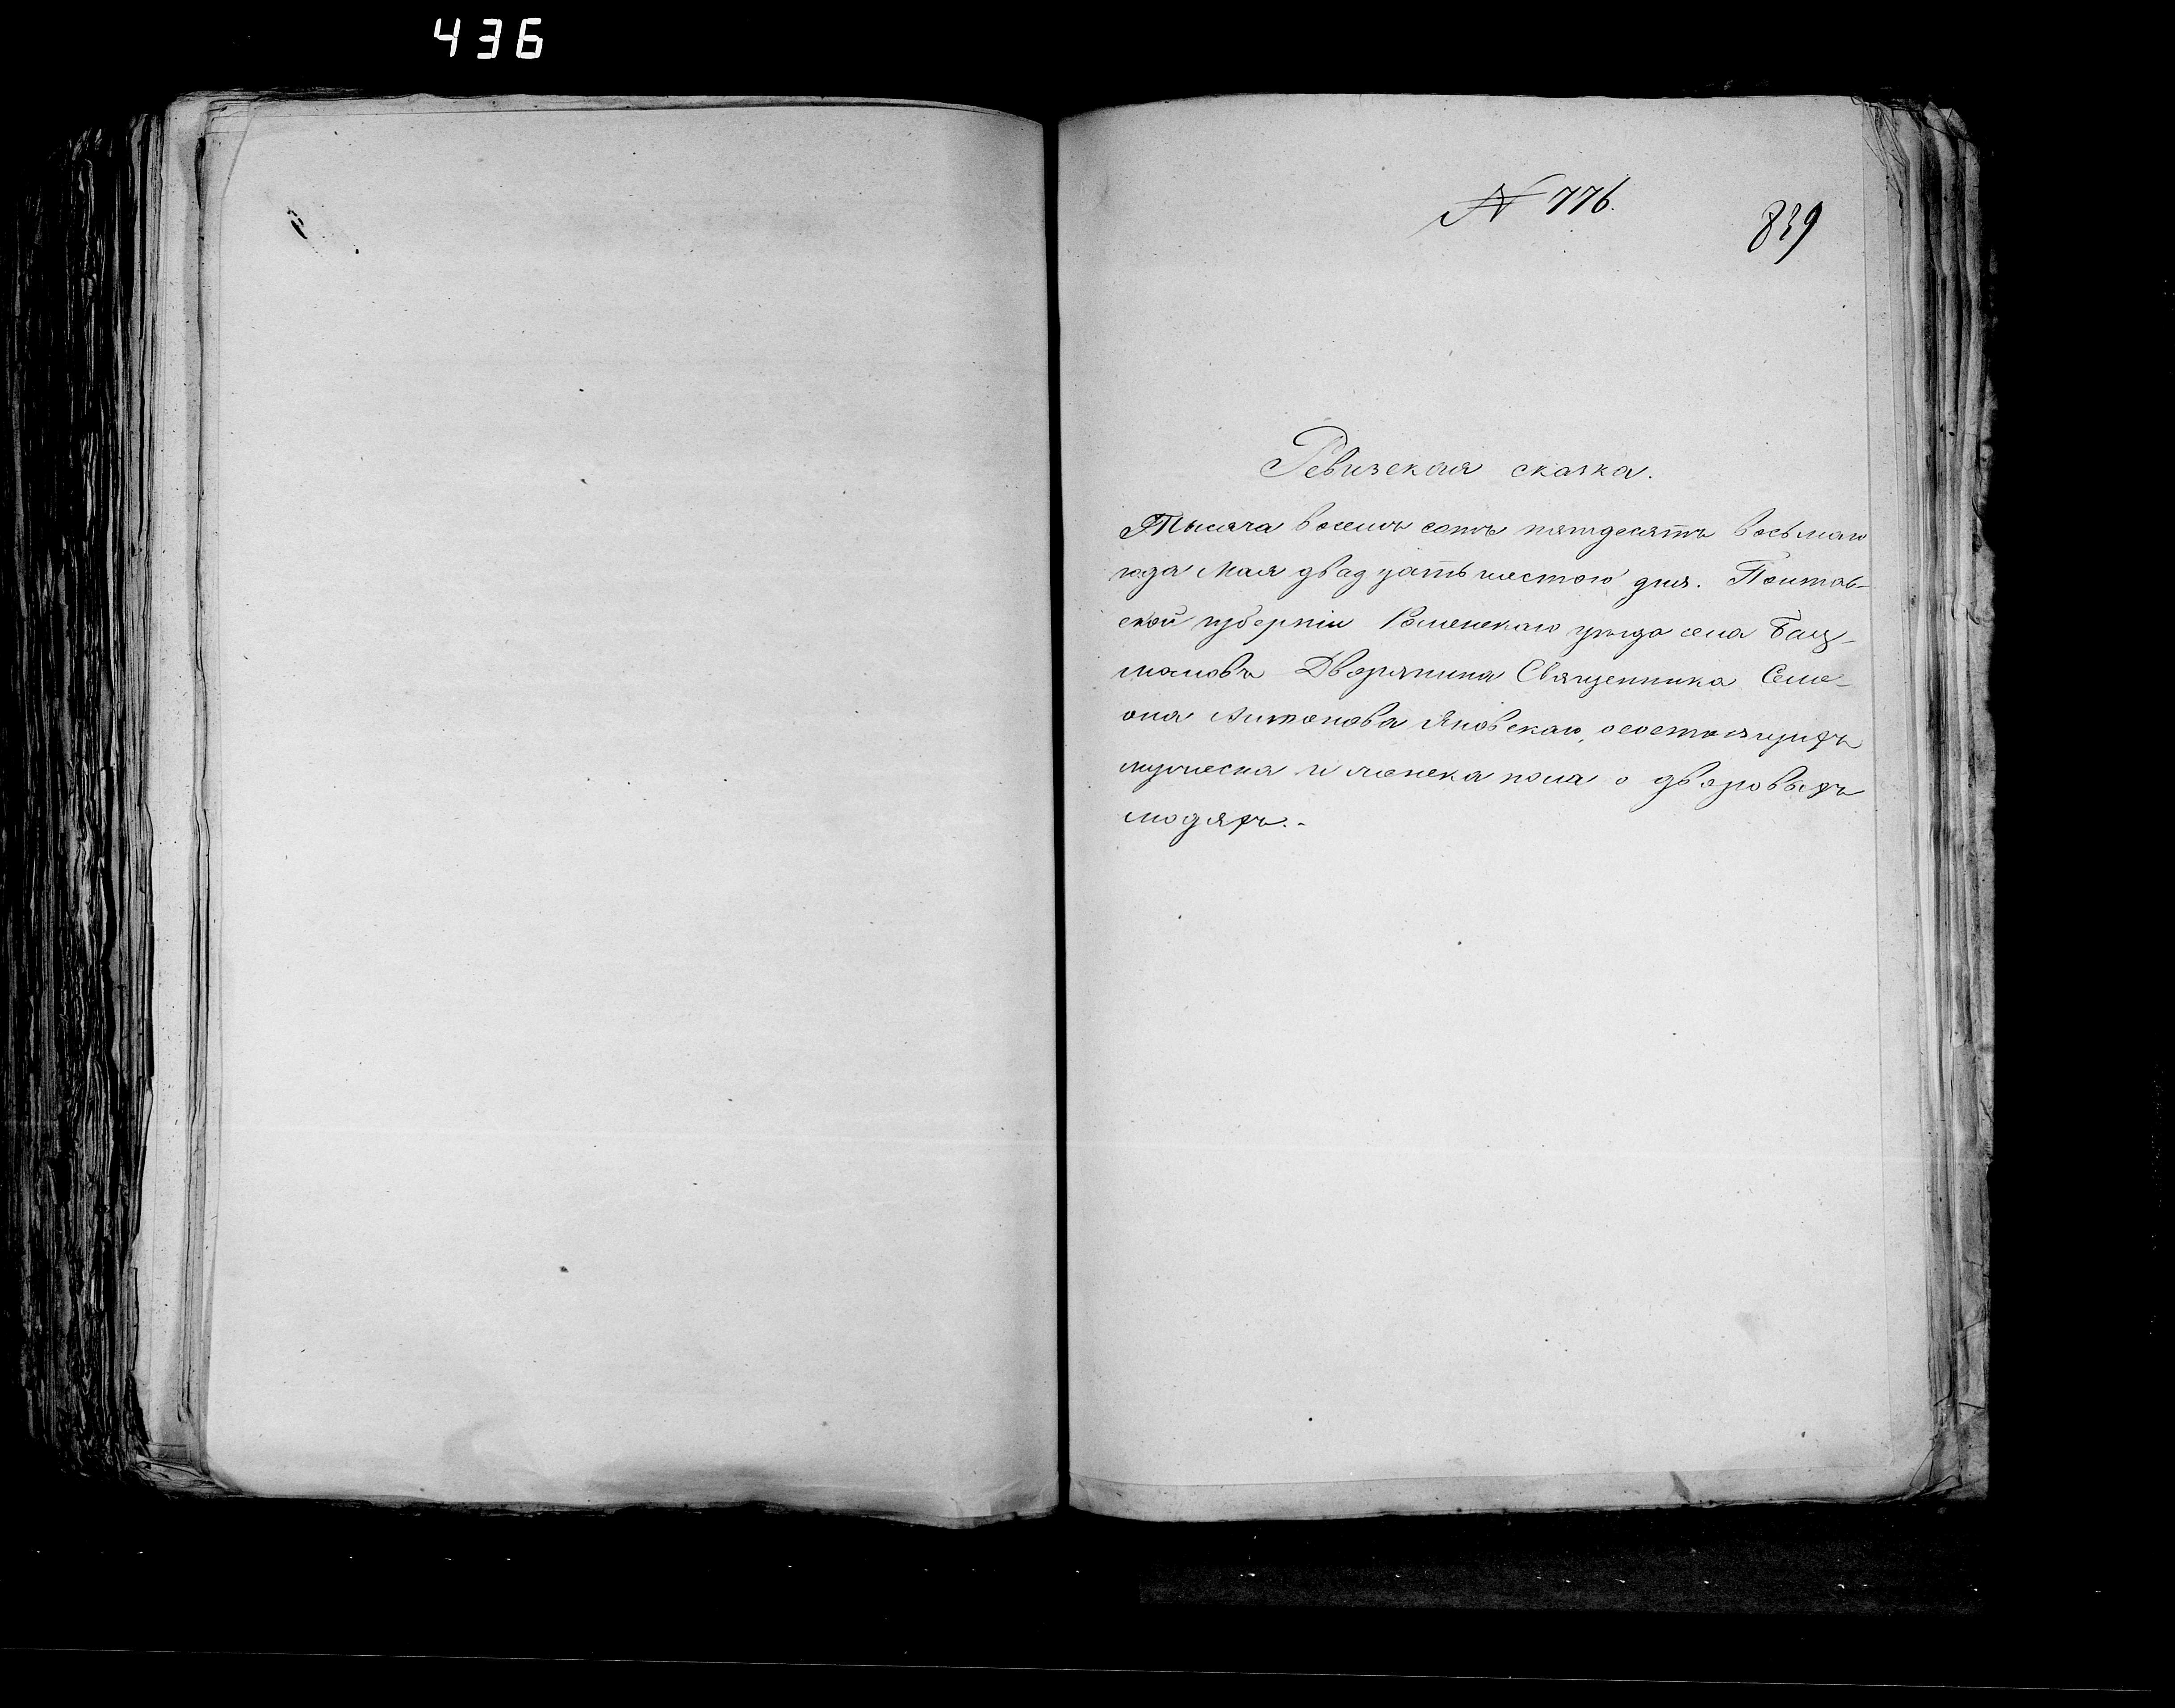 436
№ 776.
839
Ревизская сказка.
Тысяча восемъ сотъ пятдесятъ восьмаго
года Мая двадцать шестого дня. Полтав-
ской губерніи Роменскаго уѣзда села Бац-
мановъ Дворянина Священника Семе-
она Антонова Яновскаго, о состоящихъ
мужеска и женска пола о дворовыхъ
людяхъ.-